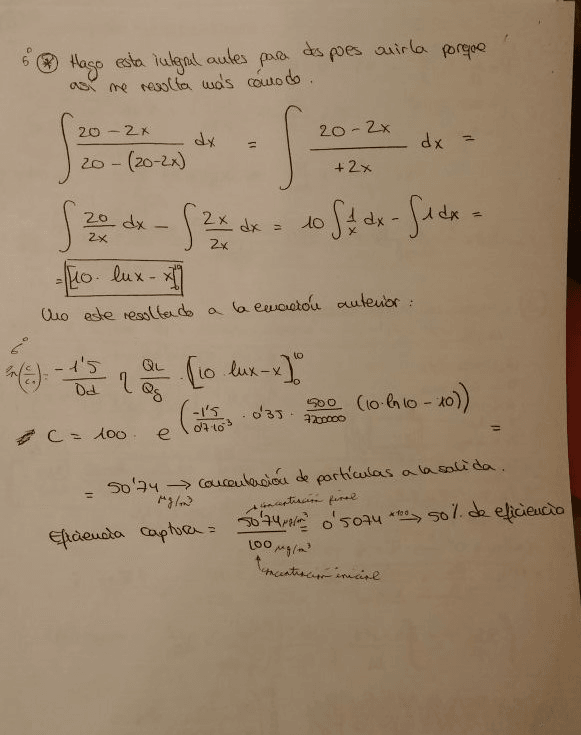 5º (*) Hago esta integral antes para despoes unirla porque
así me resolta más cómodo.
∫ (20 - 2x)/(20 - (20-2x)) dx = ∫ (20 - 2x)/(+2x) dx =
∫ 20/2x dx - ∫ 2x/2x dx = 10 ∫ 1/x dx - ∫ 1 dx =
= [10 · lnx - x]₀¹⁰
Uno este resoltado a la ecuación anterior:
6º
ln(C/C₀) = -1'5/Dd η QL/Qg · [10 · lnx - x]₀¹⁰
C = 100 · e^(-1'5/0'7·10⁻³ · 0'35 · 500/7200000 (10·ln10 - 10)) =
= 50'74 μg/m³ → concentración de partículas a la salida.
concentración final
Eficiencia captora = 50'74 μg/m³ / 100 μg/m³ = 0'5074 ×100→ 50% de eficiencia
concentración inicial